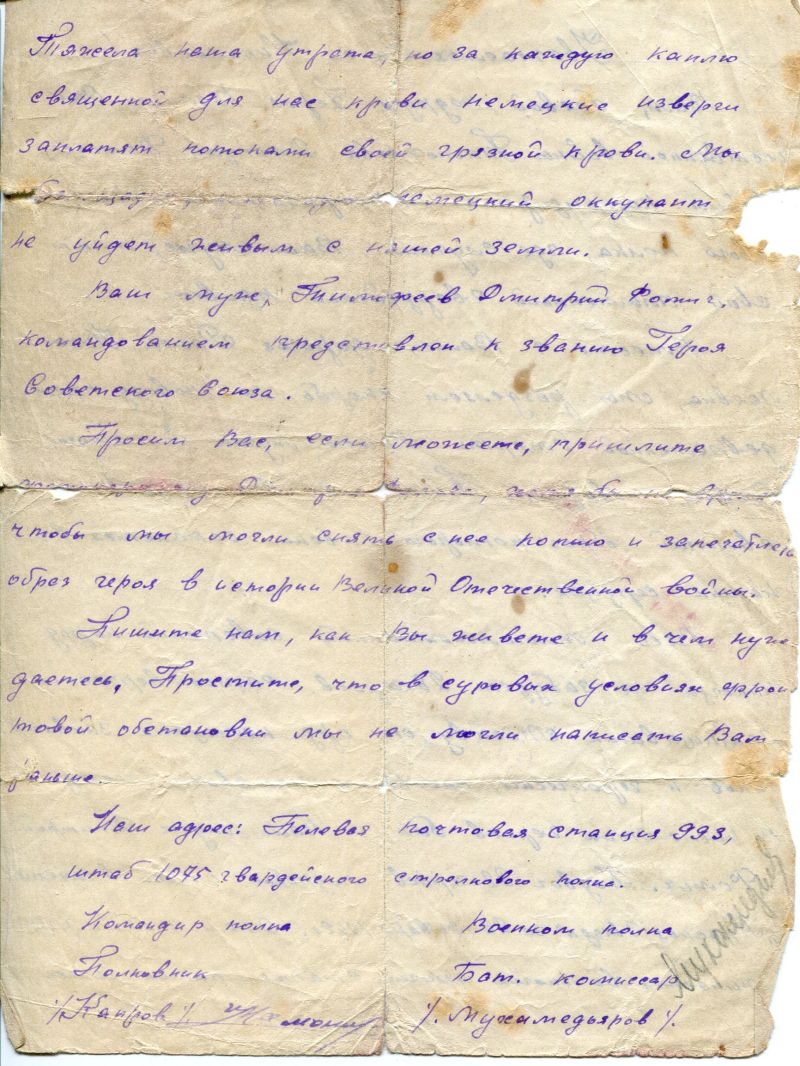 Тяжела наша утрата, но за каждую каплю
священной для нас крови немецкие изверги
заплатят потоками своей грязной крови. Мы
немецкий оккупант
не уйдет живым с нашей земли.
Ваш муж, Тимофеев Дмитрий Фомич.
командованием представлен к званию Героя
Советского Союза.
Просим Вас, если можете, пришлите
чтобы мы могли снять с нее копию и запечатлеть
образ героя в истории Великой Отечественной войны.
Пишите нам, как Вы живете и в чем нуж
даетесь. Простите, что в суровых условиях фрон
товой обстановки мы не могли написать Вам
раньше.
Наш адрес: Полевая почтовая станция 993,
штаб 1075 гвардейского стрелкового полка.
Командир полка Военком полка
Полковник Бат. комиссар
/Капров/. /. Мухамедьяров /.